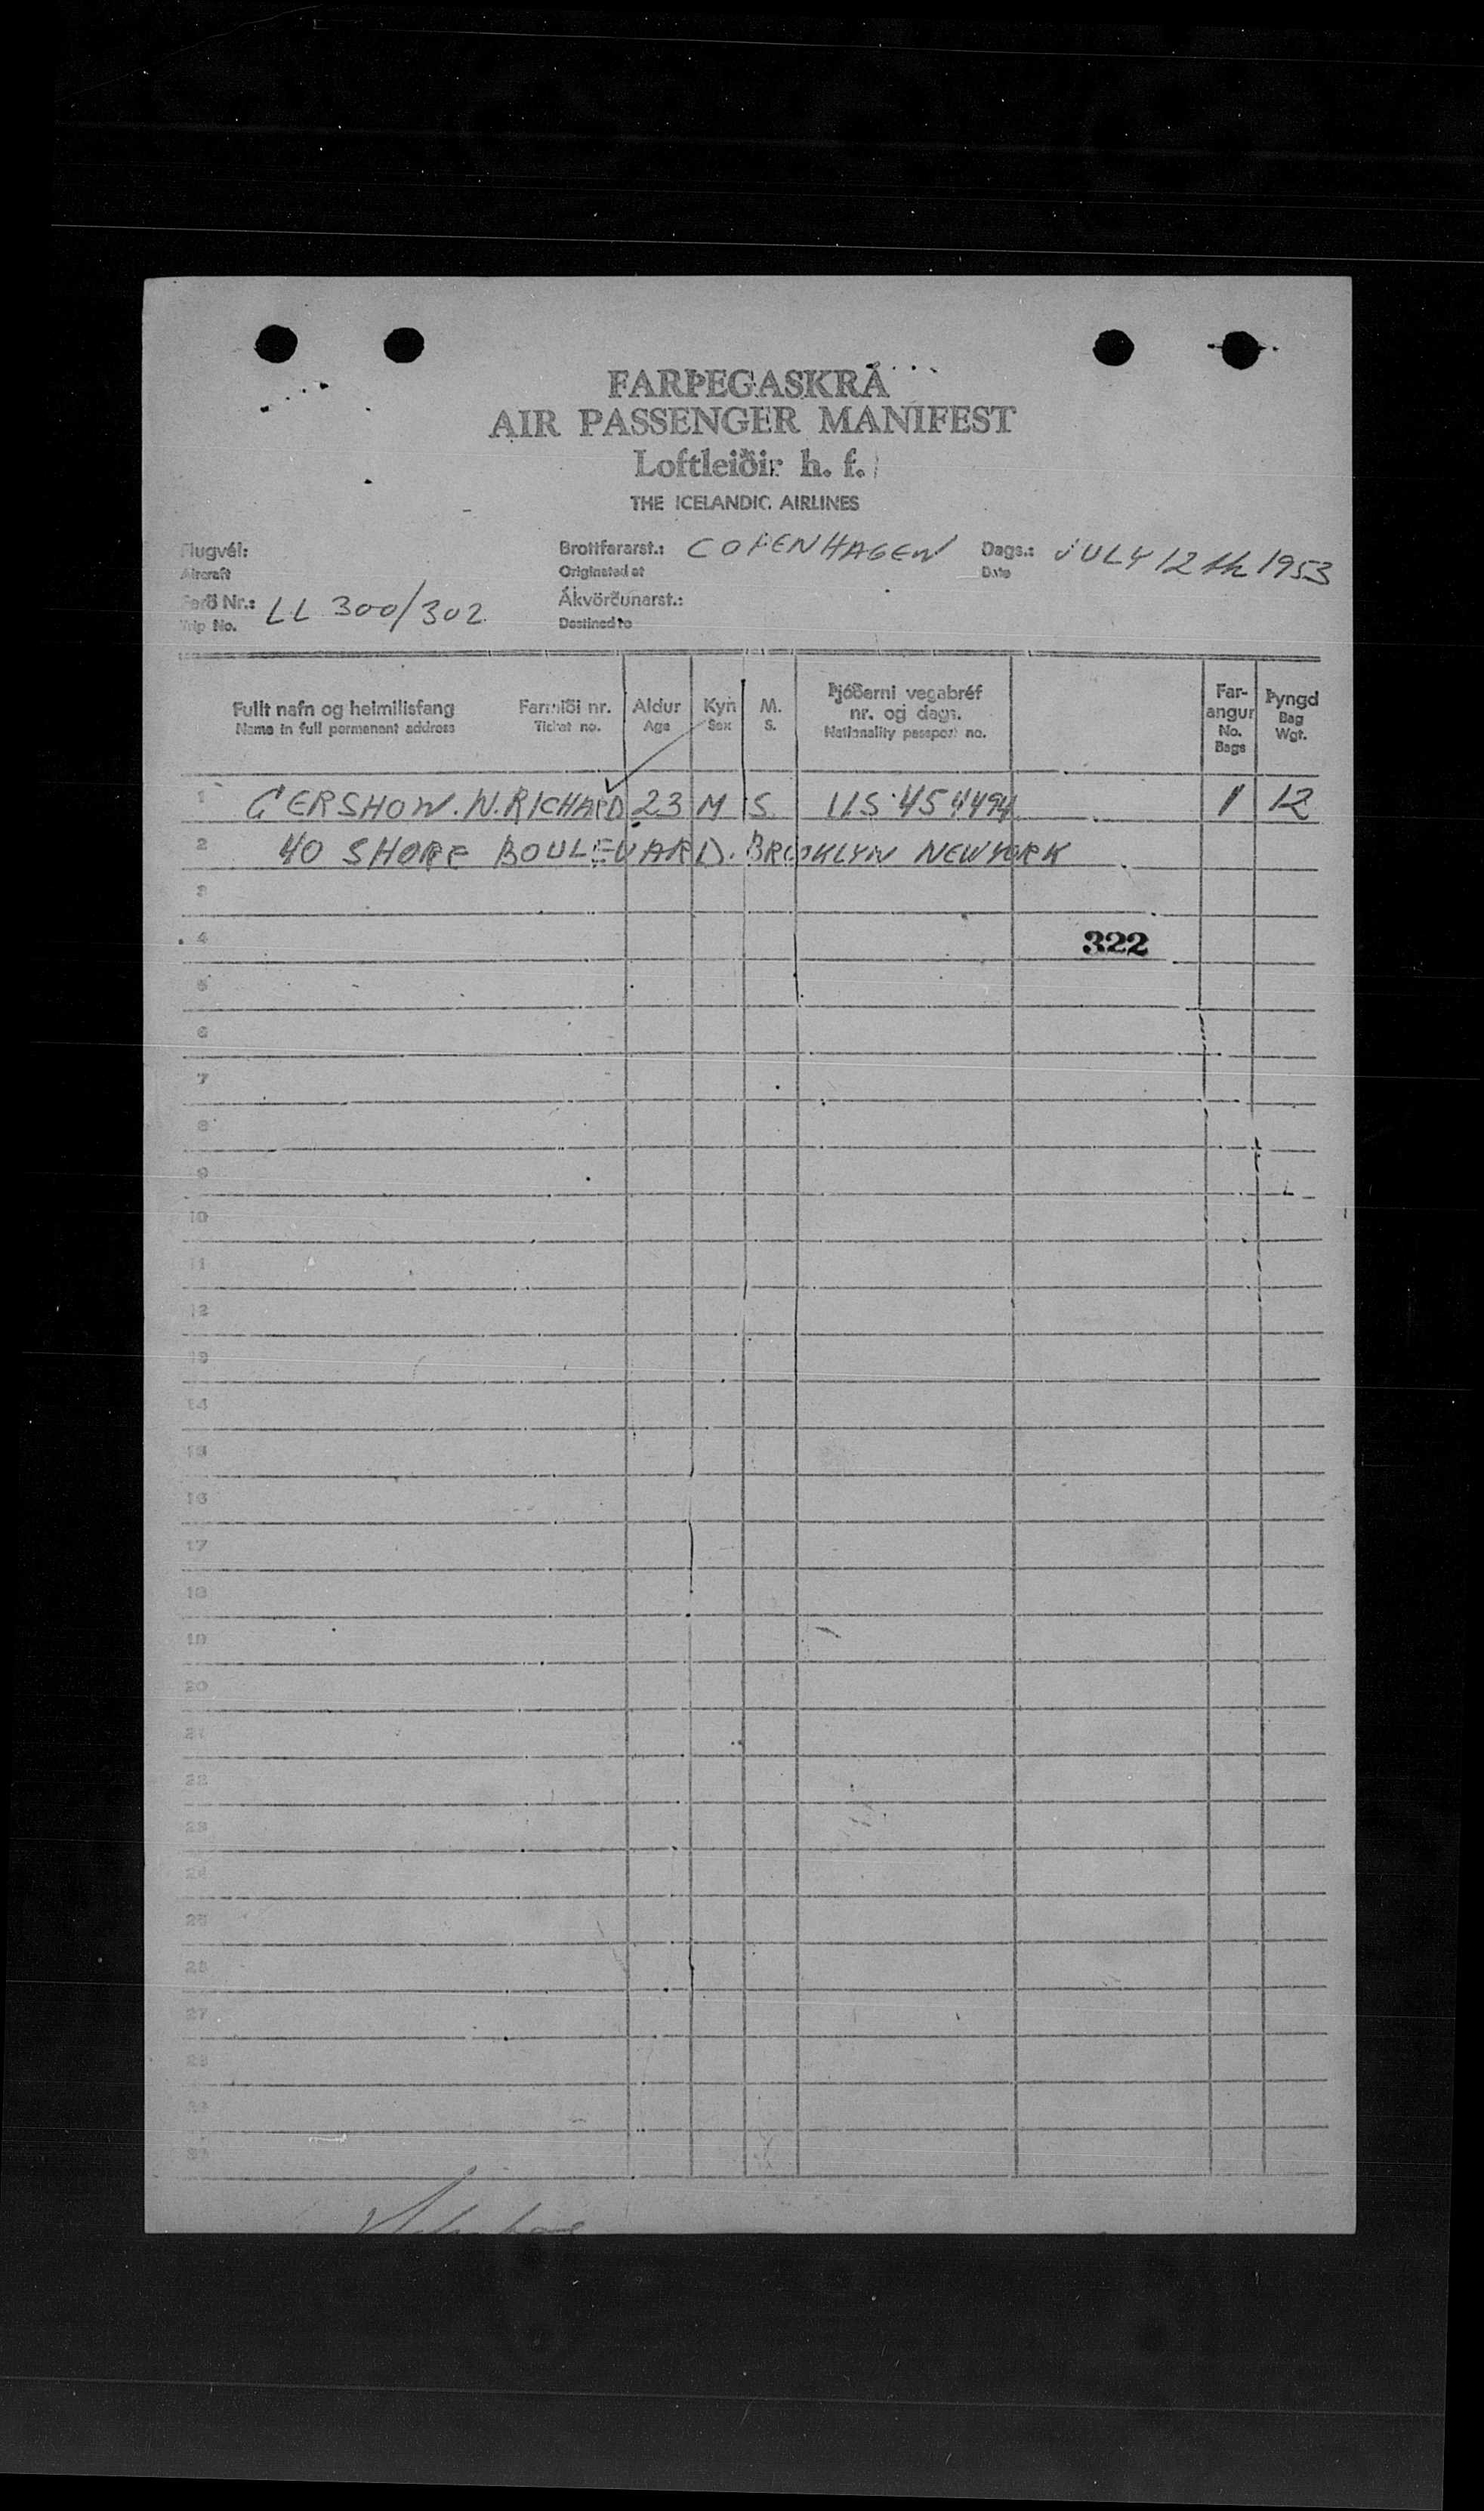 FARÞEGASKRÁ
AIR PASSENGER MANIFEST
Loftleiðir h. f.
THE ICELANDIC AIRLINES
Flugvél: Brottfararst.: COPENHAGEN Dags.: JULY 12th 1953
Aircraft Originated at Date
Ferð Nr.: LL 300/302 Ákvörðunarst.:
Trip No. Destined to
Fullt nafn og heimilisfang Farmiði nr. Aldur Kyn M. Þjóðerni vegabréf nr. og dags. Farangur Þyngd
Name in full permanent address Ticket no. Age Sex S. Nationality passport no. No. Bags Bag Wgt.
1 GERSHOW. W. RICHARD 23 M S. US. 454494 1 12
2 40 SHORE BOULEVARD. BROOKLYN NEW YORK
3
4 322
5
6
7
8
9
10
11
12
13
14
15
16
17
18
19
20
21
22
23
24
25
26
27
28
29
30